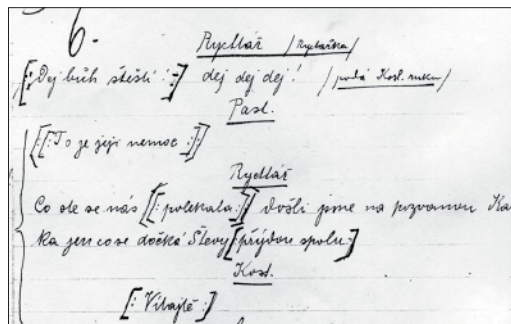 6.
Rychtář /Rychtářka/
[: Dej bůh štěstí :] dej dej dej! /podá Kost. ruku/
Past.
[[: To je její nemoc :]]
Rychtář
Co ste se nás [[: polekala :]] došli jsme na pozvanou Ka
Ka jen co se dočká Števy [: přijdou spolu :]
Kost.
[: Vitajtě :]